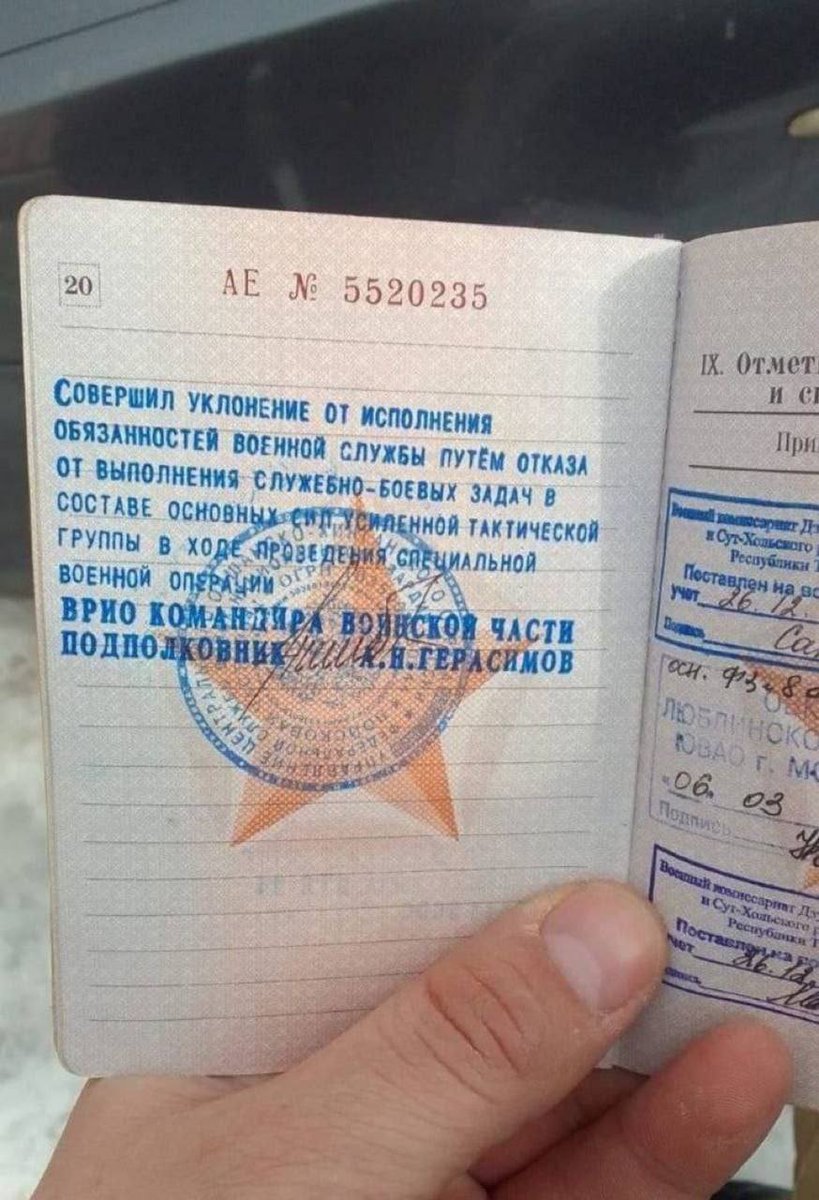 20
АЕ № 5520235
СОВЕРШИЛ УКЛОНЕНИЕ ОТ ИСПОЛНЕНИЯ
ОБЯЗАННОСТЕЙ ВОЕННОЙ СЛУЖБЫ ПУТЁМ ОТКАЗА
ОТ ВЫПОЛНЕНИЯ СЛУЖЕБНО-БОЕВЫХ ЗАДАЧ В
СОСТАВЕ ОСНОВНЫХ СИЛ УСИЛЕННОЙ ТАКТИЧЕСКОЙ
ГРУППЫ В ХОДЕ ПРОВЕДЕНИЯ СПЕЦИАЛЬНОЙ
ВОЕННОЙ ОПЕРАЦИИ
ВРИО КОМАНДИРА ВОИНСКОЙ ЧАСТИ
ПОДПОЛКОВНИК А.Н.ГЕРАСИМОВ
УПРАВЛЕНИЕ ЦЕНТРАЛ
ФЕДЕРАЛЬНОЙ СЛУЖ
ВОЙСКОВАЯ
IX. Отмет
и с
При
Военный комиссариат Дз
и Сут-Хольского р
Республики Т
Поставлен на во
учет 26.12
Подпись
осн. ФЗ
ЛЮБЛИНСКО
ЮВАО г. МО
"06. 03
Подпись
Военный комиссариат Дз
и Сут-Хольского р
Республики Т
Поставлен на во
учет 26.12